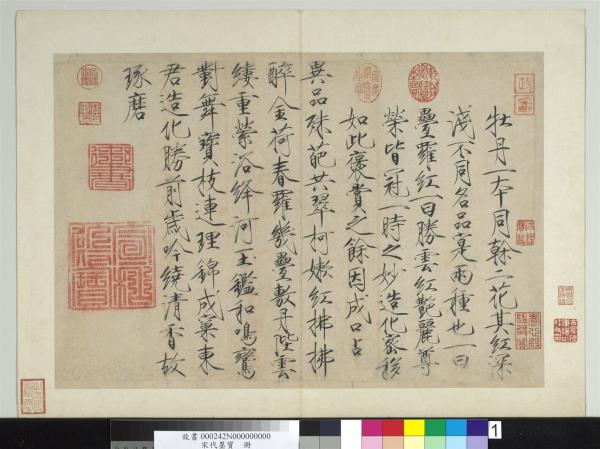 牡丹一本同榦二花其紅深
淺不同名品寔兩種也一曰
疊羅紅一曰勝雲紅艷麗尊
榮皆冠一時之妙造化密移
如此褒賞之餘因成口占
異品殊葩共翠柯嫩紅拂拂
醉金荷春羅幾疊敷丹陛雲
縷重縈浴絳河玉鑑和鳴鸞
對舞寶枝連理錦成窠東
君造化勝前歲吟繞清香故
琢磨
故書 000242N000000000
宋代墨寶 冊
1